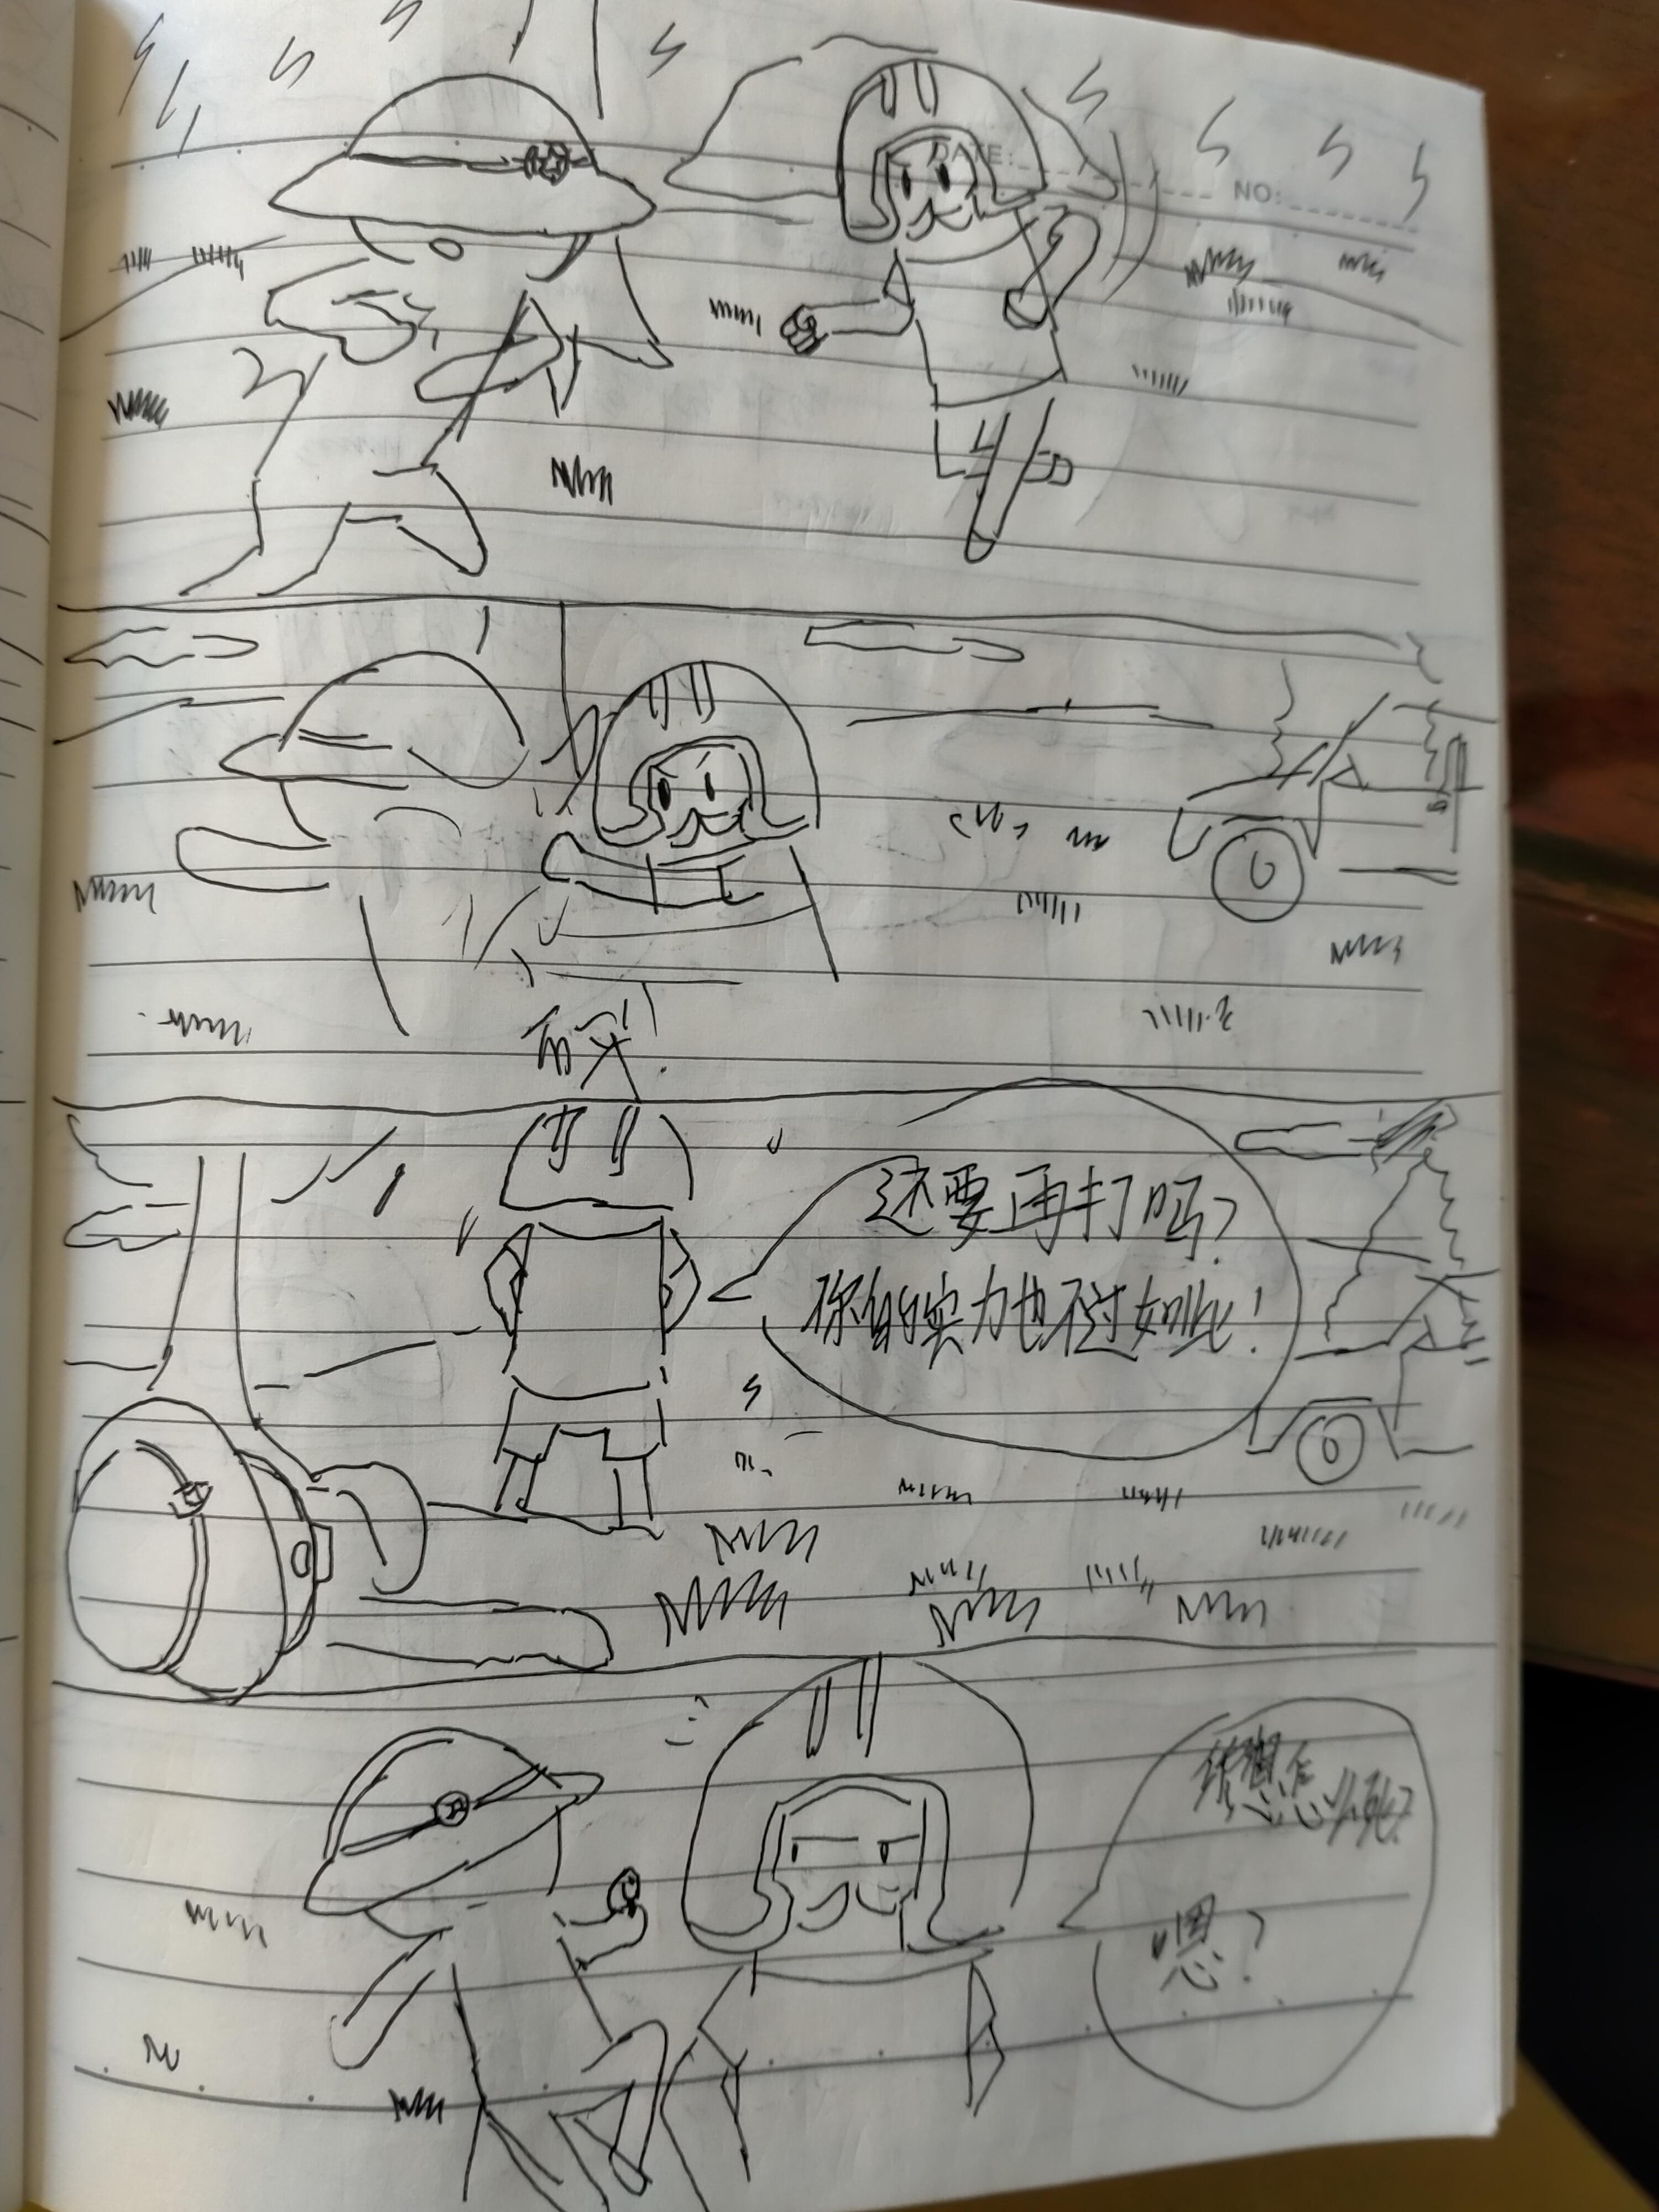 DATE:
NO:
还要再打吗?
你的实力也不过如此!
你想怎么死?
嗯?